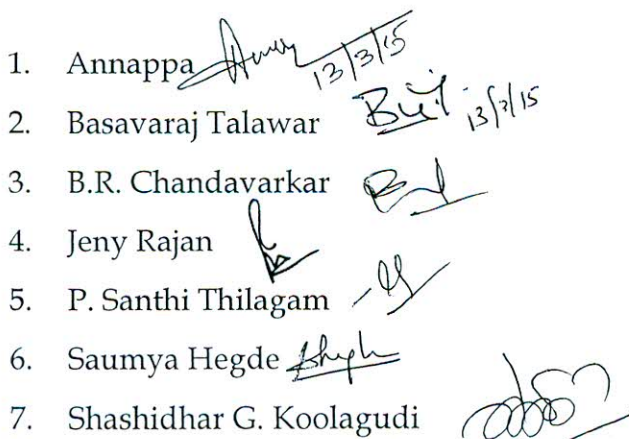 1. Annappa 13/3/15
2. Basavaraj Talawar 13/3/15
3. B.R. Chandavarkar
4. Jeny Rajan
5. P. Santhi Thilagam
6. Saumya Hegde
7. Shashidhar G. Koolagudi